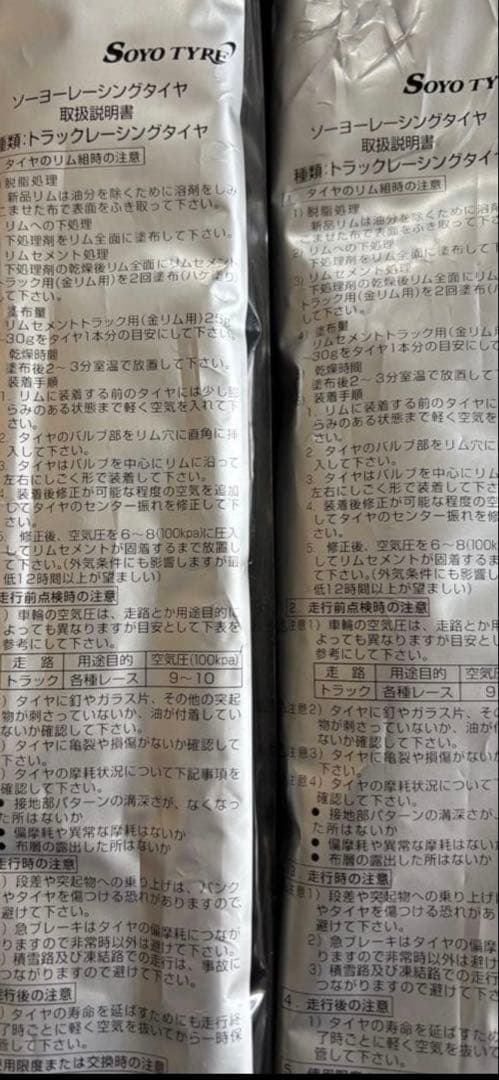 SOYO TYRE
ソーヨーレーシングタイヤ
取扱説明書
種類:トラックレーシングタイヤ
タイヤのリム組時の注意
脱脂処理
新品リムは油分を除くために溶剤をしみ
こませた布で表面をふき取って下さい。
リムへの下処理
下処理剤をリム全面に塗布して下さい。
リムセメント処理
下処理剤の乾燥後リム全面にリムセメント
トラック用(金リム用)を2回塗布(ハケ塗り)
して下さい。
塗布量
リムセメントトラック用(金リム用)25g
~30gをタイヤ1本分の目安にして下さい。
乾燥時間
塗布後2~3分室温で放置して下さい。
装着手順
1. リムに装着する前のタイヤには少し膨
らみのある状態まで軽く空気を入れて下
さい。
2. タイヤのバルブ部をリム穴に直角に挿
入して下さい。
3. タイヤはバルブを中心にリムに沿って
左右にしごく形で装着して下さい。
4. 装着後修正が可能な程度の空気を追加
してタイヤのセンター振れを修正して下
さい。
5. 修正後、空気圧を6~8(100kpa)に圧入
してリムセメントが固着するまで放置し
て下さい。(外気条件にも影響しますが最
低12時間以上が望ましい)
走行前点検時の注意
) 車輪の空気圧は、走路とか用途目的に
よっても異なりますが目安として下表を
参考にして下さい。
走 路 用途目的 空気圧(100kpa)
トラック 各種レース 9~10
) タイヤに釘やガラス片、その他の突起
物が刺さっていないか、油が付着してい
ないか確認して下さい。
) タイヤに亀裂や損傷がないか確認して
下さい。
) タイヤの摩耗状況について下記事項を
確認して下さい。
● 接地部パターンの溝深さが、なくなっ
た所はないか
● 偏摩耗や異常な摩耗はないか
● 布層の露出した所はないか
走行時の注意
) 段差や突起物への乗り上げは、パンク
やタイヤを傷つける恐れがありますので、
避けて下さい。
) 急ブレーキはタイヤの偏摩耗につなが
りますので非常時以外は避けて下さい。
) 積雪路及び凍結路での走行は、事故に
つながりますので避けて下さい。
走行後の注意
) タイヤの寿命を延ばすためにも走行終
了時ごとに軽く空気を抜いてから一時保
管して下さい。
使用限度または交換時の注意
SOYO TY
ソーヨーレーシングタイヤ
取扱説明書
種類:トラックレーシングタイ
1. タイヤのリム組時の注意
1) 脱脂処理
新品リムは油分を除くために溶剤
こませた布で表面をふき取って下
2) リムへの下処理
下処理剤をリム全面に塗布して下
3) リムセメント処理
下処理剤の乾燥後リム全面にリム
トラック用(金リム用)を2回塗布(
して下さい。
4) 塗布量
リムセメントトラック用(金リム用
~30gをタイヤ1本分の目安にして
) 乾燥時間
塗布後2~3分室温で放置して下
) 装着手順
1. リムに装着する前のタイヤに
らみのある状態まで軽く空気を
さい。
2. タイヤのバルブ部をリム穴に
入して下さい。
3. タイヤはバルブを中心にリム
左右にしごく形で装着して下さ
4. 装着後修正が可能な程度の空
してタイヤのセンター振れを修
さい。
5. 修正後、空気圧を6~8(100k
してリムセメントが固着するま
て下さい。(外気条件にも影響し
低12時間以上が望ましい)
2. 走行前点検時の注意
注意1) 車輪の空気圧は、走路とか用
よっても異なりますが目安とし
参考にして下さい。
走 路 用途目的 空気
トラック 各種レース 9
注意2) タイヤに釘やガラス片、その
物が刺さっていないか、油が付
ないか確認して下さい。
注意3) タイヤに亀裂や損傷がないか
下さい。
注意4) タイヤの摩耗状況について下
確認して下さい。
● 接地部パターンの溝深さが、
た所はないか
● 偏摩耗や異常な摩耗はないか
● 布層の露出した所はないか
3. 走行時の注意
注意1) 段差や突起物への乗り上げは
やタイヤを傷つける恐れがあ
避けて下さい。
2) 急ブレーキはタイヤの偏摩
りますので非常時以外は避け
3) 積雪路及び凍結路での走行
つながりますので避けて下さ
4. 走行後の注意
1) タイヤの寿命を延ばすため
了時ごとに軽く空気を抜いて
管して下さい。
5. 使用限度